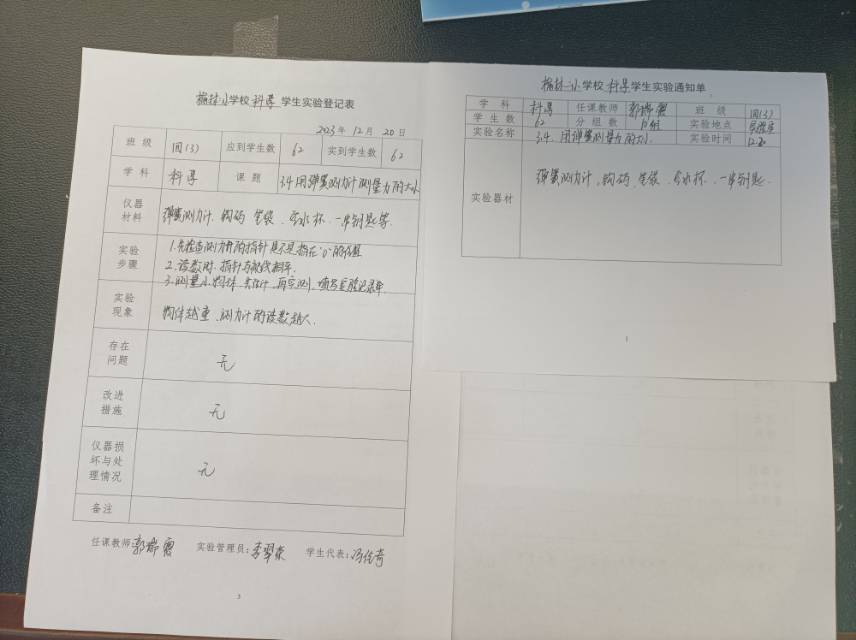 学校 科学 学生实验登记表
2023年 12月 20日
班级 四(3) 应到学生数 62 实到学生数 62
学科 科学 课题 3.4用弹簧测力计测量力的大小
仪器材料 弹簧测力计、钩码、笔袋、水杯、一串钥匙等
实验步骤 1.先检查测力计的指针是不是指在"0"的位置
2.读数时，指针与视线相平.
3.测量小物体，先估计，再实测，填写实验记录单.
实验现象 物体越重，测力计的读数越大.
存在问题 无
改进措施 无
仪器损坏与处理情况 无
备注
任课教师: 郭 霞 实验管理员: 李 学生代表:
3
学校 科学 学生实验通知单
学科 科学 任课教师 郭 霞 班级 四(3)
学生数 62 分组数 实验地点 实验室
实验名称 3.4 用弹簧测量力的大小. 实验时间 12.20
实验器材 弹簧测力计、钩码、笔袋、水杯、一串钥匙.
1